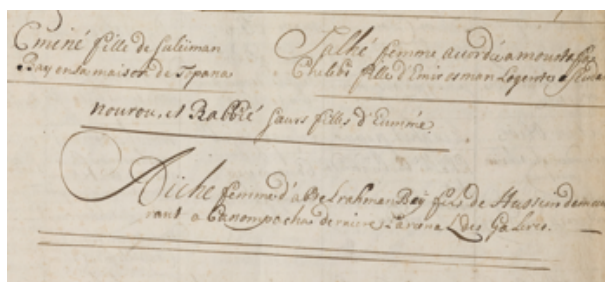 Emené fille de Suleiman
Bay en sa maison de Topana
Salhé femme acordée a moustafa
Chelebi fille d'Emir osman Logeinte a
nourou, et Rabbié sœurs filles d'Eummé.
Aïche femme d'abdelrahman Bey fils de Hussein demeu
rant a derriere L'arsenal des Galeres.